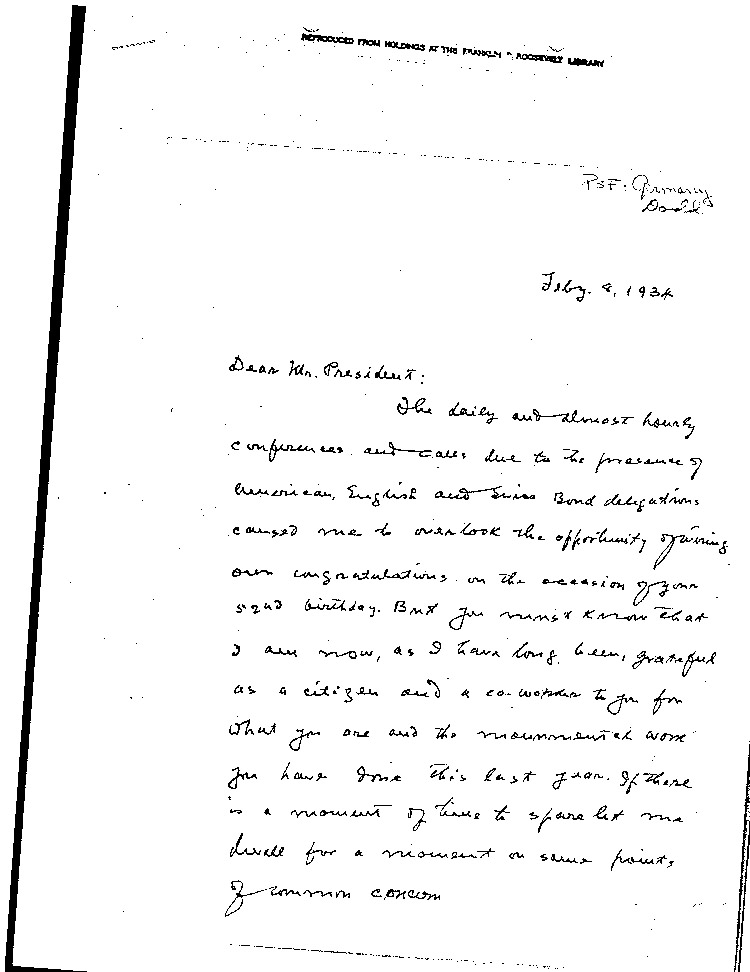 REPRODUCED FROM HOLDINGS AT THE FRANKLIN D. ROOSEVELT LIBRARY
PSF: Germany
Dodd
Feby. 8, 1934
Dear Mr. President:
The daily and almost hourly
conferences and calls due to the presence of
American, English and Swiss Bond delegations
caused me to overlook the opportunity of wiring
our congratulations on the occasion of your
52nd birthday. But you must know that
I am now, as I have long been, grateful
as a citizen and a co-worker to you for
what you are and the monumental work
you have done this last year. If there
is a moment of time to spare let me
dwell for a moment on some points
of common concern